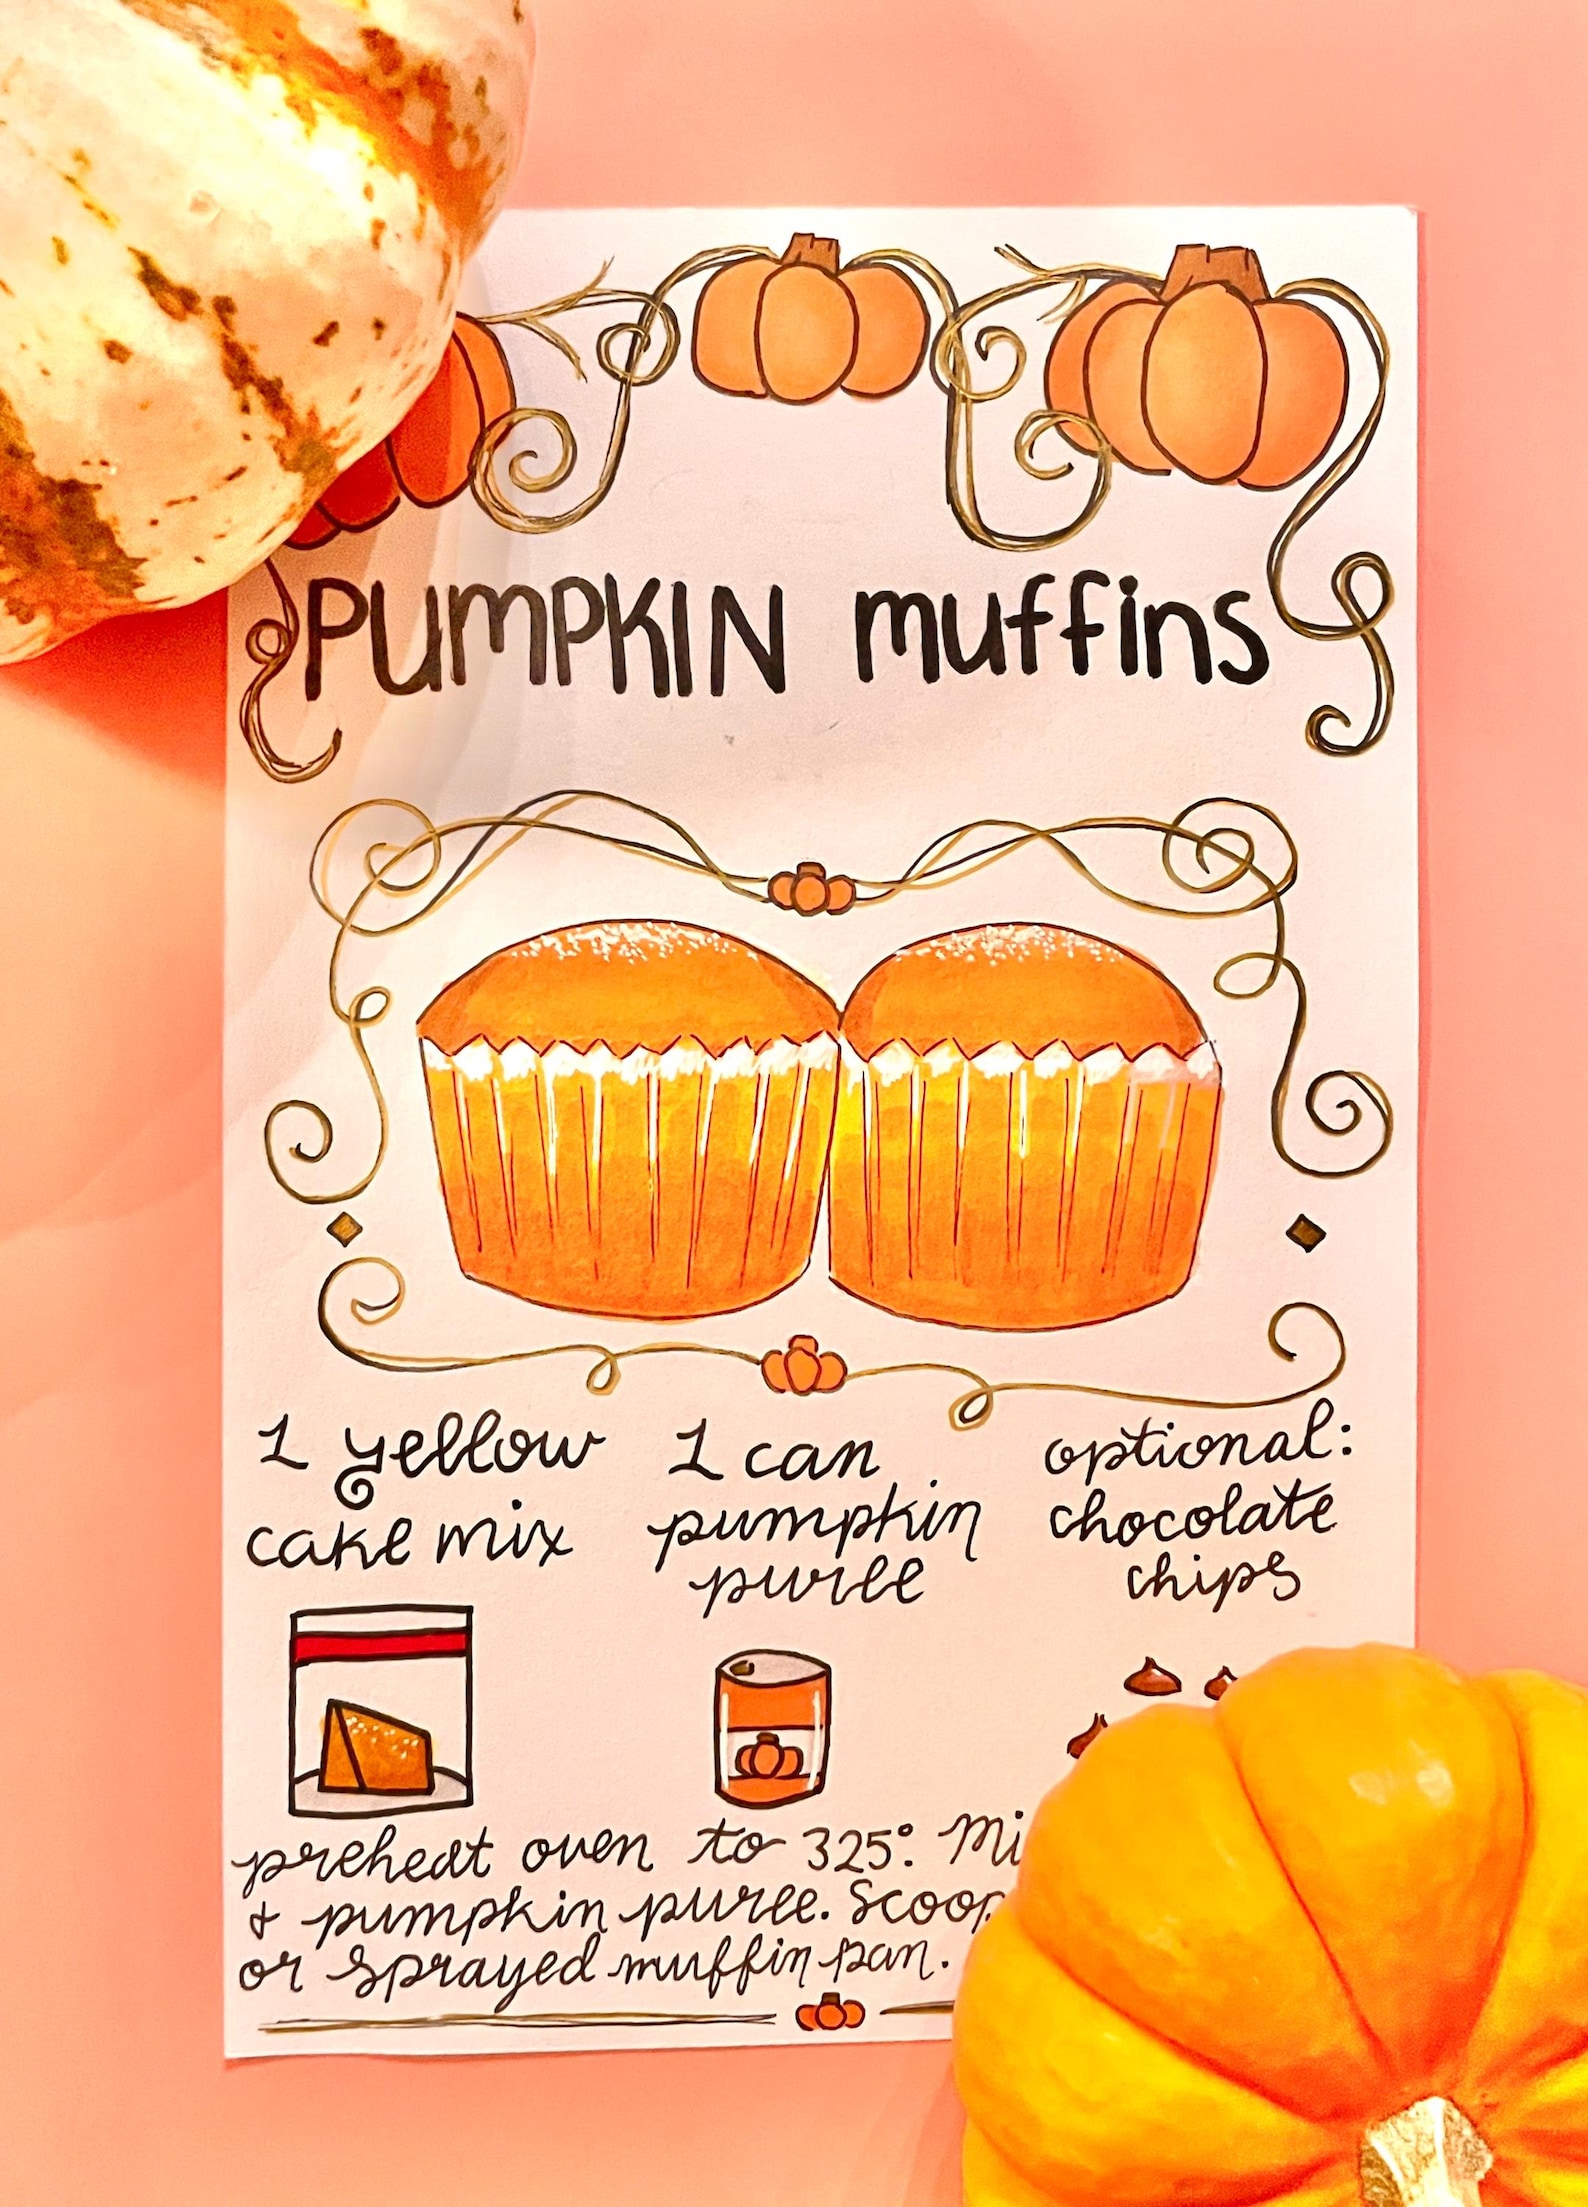 PUMPKIN muffins
1 yellow
cake mix
1 can
pumpkin
puree
optional:
chocolate
chips
preheat oven to 325°. Mi
& pumpkin puree. Scoop
or sprayed muffin pan.